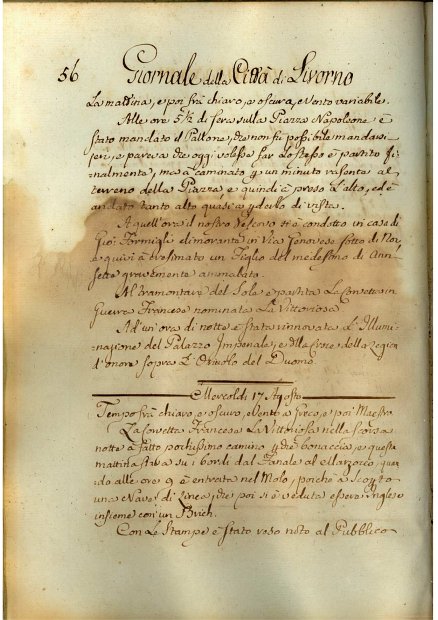 56 Giornale della Città di Livorno
la mattina, e poi frà chiaro, e oscuro, e Vento variabile.
Alle ore 5½ di sera sulla Piazza Napoleone è
stato mandato il Pallone, che non fù possibile mandar
ieri, e pareva che oggi volesse far lo stesso è partito fi-
nalmente, ma à caminato p un minuto rasente al
terreno della Piazza e quindi à preso l'alto, ed è
andato tanto alto quasi a perderlo di vista.
A quell'ora il nostro Vescovo si è condotto in casa di
Gio: Formigli dimorante in Via Genovese sotto di Nor,
e quivi à cresimato un Figlio del medesimo di Ann.
sette gravemente ammalato.
Al tramontare del Sole è partita La Corvetta in
Guerra Francese nominata La Vittoriosa
Ad un'ora di notte è stata rinnovata L'Illumi-
nazione del Palazzo Imperiale, e della Croce della Legion
d'onore sopra L'Oriuolo del Duomo.
Mercoldì 17 Agosto
Tempo frà chiaro, e oscuro, e Vento a Greco, e poi Maestro
La Corvetta Francese La Vittoriosa nella scorsa
notte à fatto pochissimo camino p che bonaccia, e questa
mattina stava su i bordi dal Fanale al Marzocco, quan
do alle ore 9 è entrata nel Molo, poiche à scorto
una Nave di Linea, che poi si è veduta essere inglese
insieme con un Brich.
Con le Stampe è stato reso noto al Pubblico